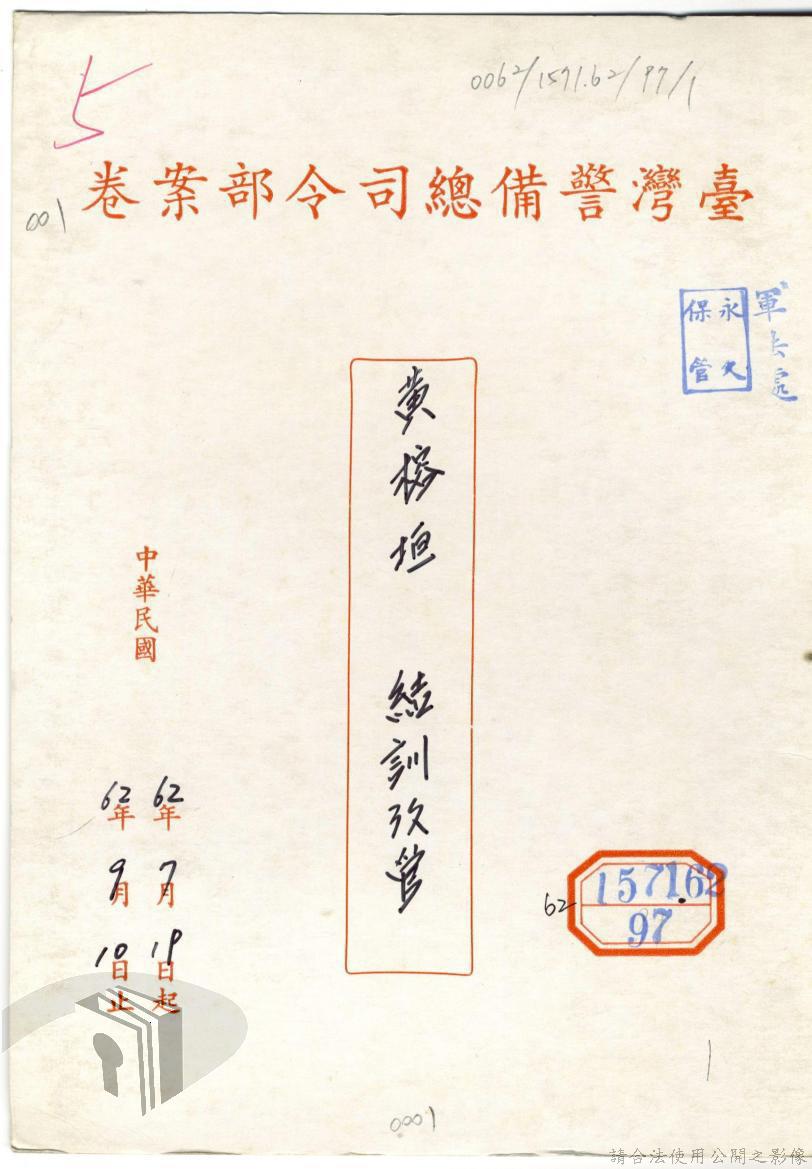 5
0062/1571.62/97/1
臺灣警備總司令部案卷
001
永久
保管
黃榕垣 結訓改管
中華民國
62年7月19日起
62年9月10日止
62
157162
97
1
0001
請合法使用公開之影像